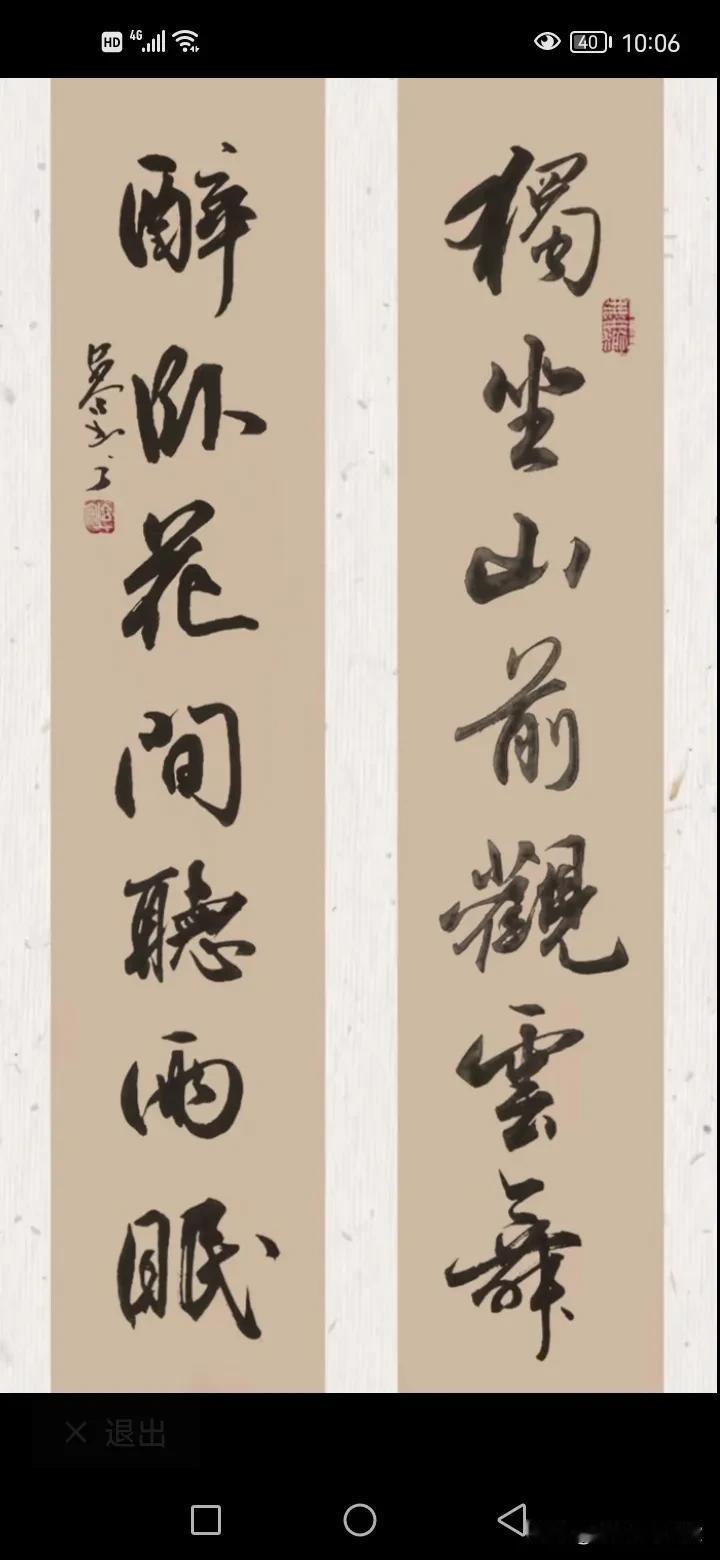 HD 4G 40 10:06
獨坐山前觀雲舞
醉臥花間聽雨眠
退出